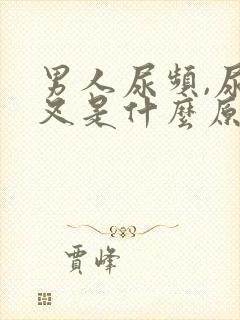 男人尿頻,尿
又是什麼原
賈峰